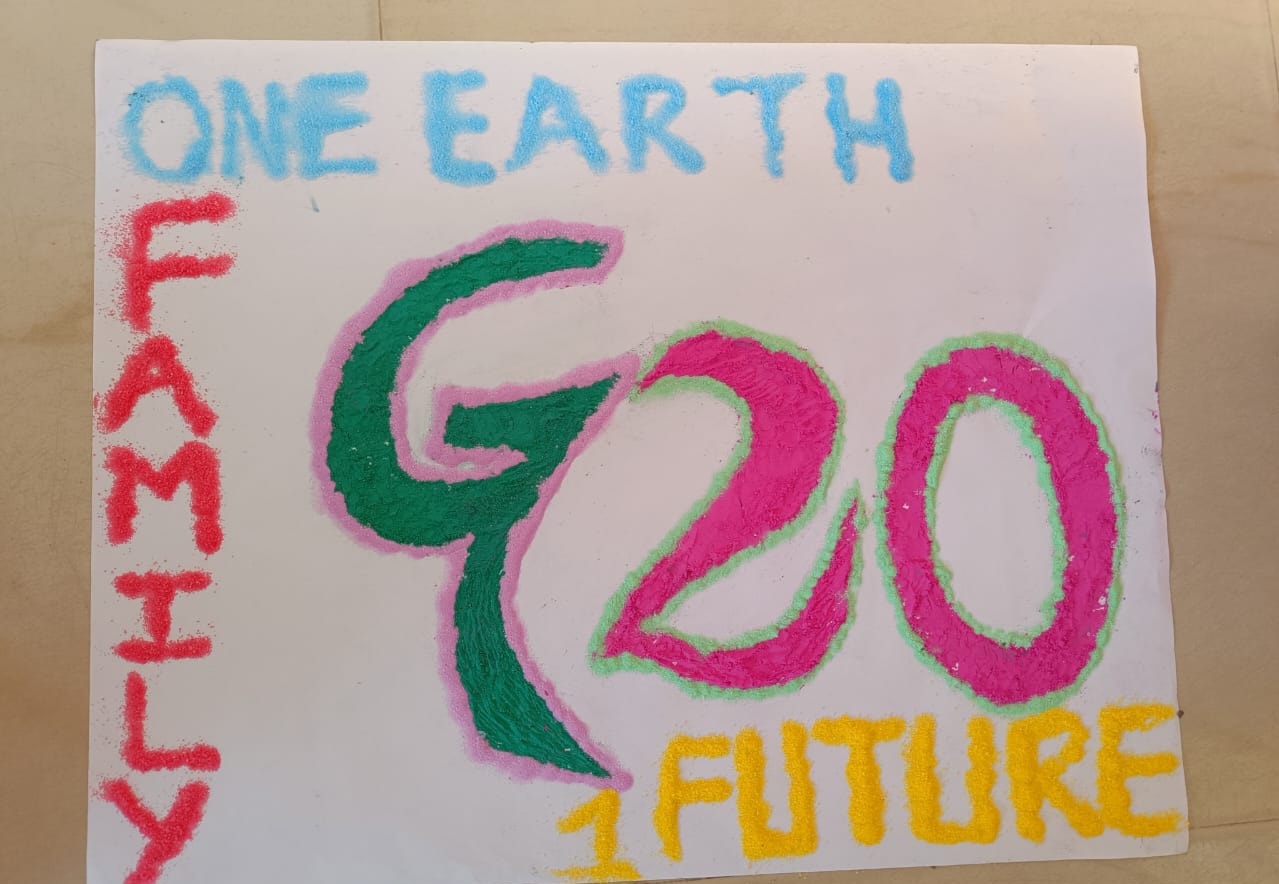 ONE EARTH
FAMILY
G20
1 FUTURE